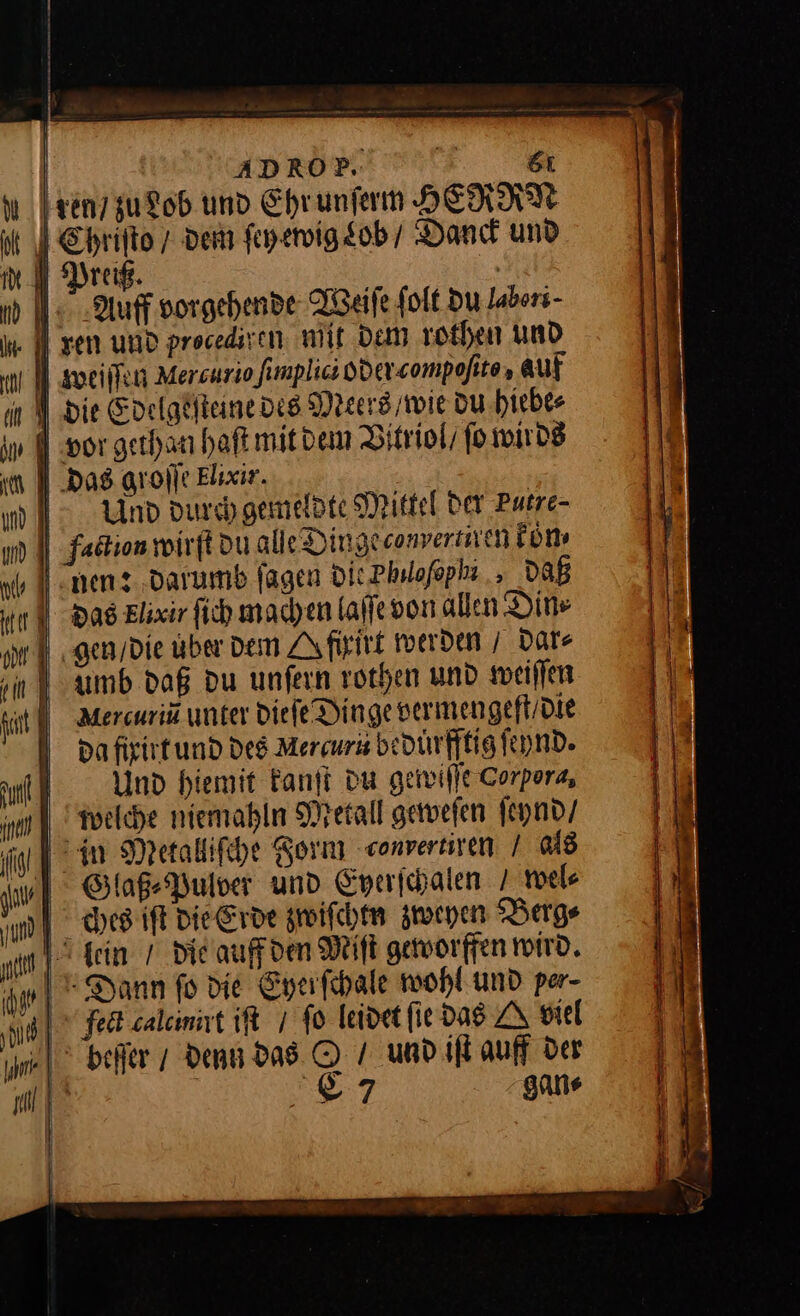 ADROP. 61
ren/ zu Lob und Ehr unſerm HERRN
Chriſto / dem ſey ewig Lob / Danck und
Preiß.
Auff vorgehende Weiſe ſolt du labori-
ren und procediren mit dem rothen und
weiſſen Mercurio ſimplici oder compoſito, auf
die Edelgeſteine des Meers / wie du hiebe⸗
vor gethan haſt mit dem Vitriol / ſo wirds
das groſſe Elixir.
Und durch gemeldte Mittel der Putre-
faction wirſt du alle Dinge convertiren kön⸗
nen: darumb ſagen die Philoſophi, daß
das Elixir ſich machen laſſe von allen Din⸗
gen / die über dem 🜂 fixirt werden / dar⸗
umb daß du unſern rothen und weiſſen
Mercuriũ unter dieſe Dinge vermengeſt / die
da fixirt und des Mercurii bedürfftig ſeynd.
Und hiemit kanſt du gewiſſe Corpora,
welche niemahln Metall geweſen ſeynd /
in Metalliſche Form convertiren / als
Glaß⸗Pulver und Eyerſchalen / wel⸗
ches iſt die Erde zwiſchen zweyen Berg⸗
lein / die auff den Miſt geworffen wird.
Dann ſo die Eyerſchale wohl und per-
fect calcinirt iſt / ſo leidet ſie das 🜂 viel
beſſer / denn das ☉ / und iſt auff der
E 7 gan⸗